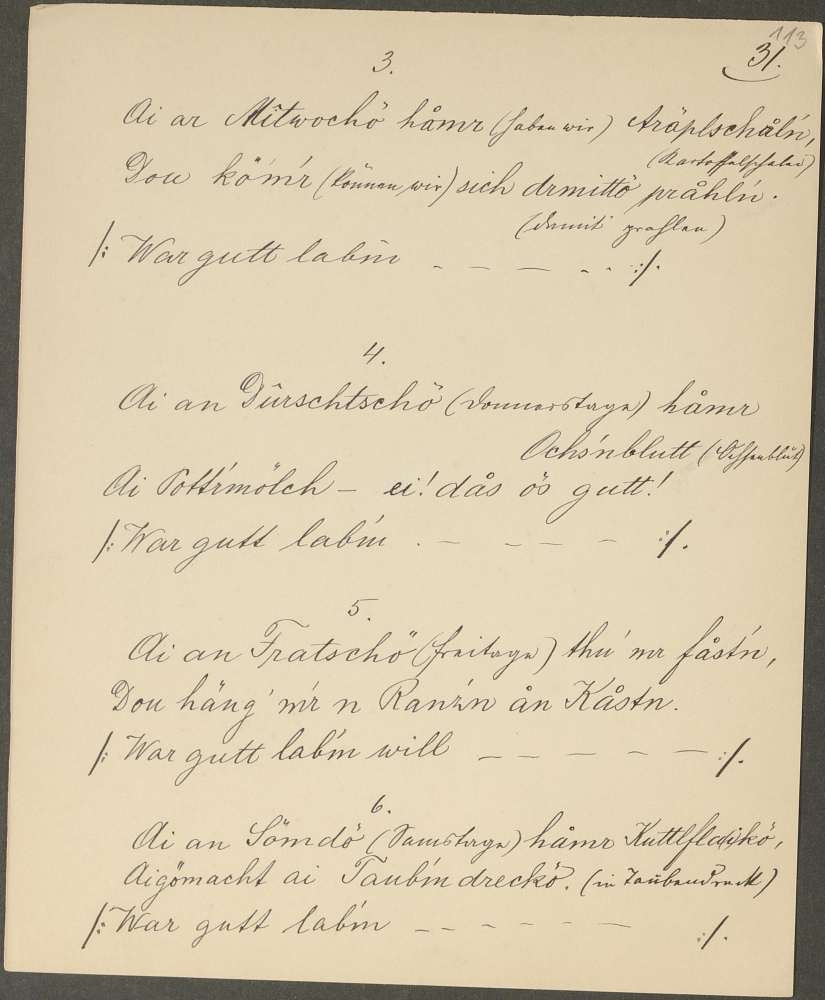 113
31.
3.
Ai ar Mitwochö håmr (haben wir) Aräplschåln,
(Kartoffelschalen)
Dou kö'm'r (können wir) sich drmittö pråhl'n.
(damit prahlen)
/: War gutt lab'm - - - - - :/.
4.
Ai an Dûrschtschö (Donnerstage) håmr
Ochs'nblutt (Ochsenblut)
Ai Pottr'mölch – ei! dås ös gutt!
/: War gutt lab'm - - - - - :/.
5.
Ai an Fratschö (Freitage) thu' mr fåst'n,
Dou häng' m'r n Ranz'n ån Kåstn.
/: War gutt lab'm will - - - - - :/.
6.
Ai an Sömdö (Samstage) håmr Kuttlfleekö,
Aigömacht ai Taub'mdreckö. (in Taubendreck)
/: War gutt lab'm - - - - - - :/.